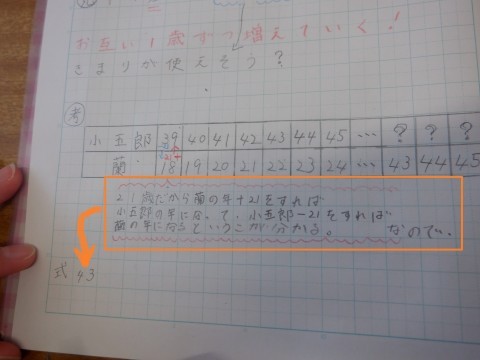 お互い1歳ずつ増えていく!
きまりが使えそう?
考
小五郎 39 40 41 42 43 44 45 … ? ? ?
蘭 18 19 20 21 22 23 24 … 43 44 45
21歳だから蘭の年+21をすれば
小五郎の年になって、小五郎-21をすれば
蘭の年になるということが分かる。 なので、
式 43